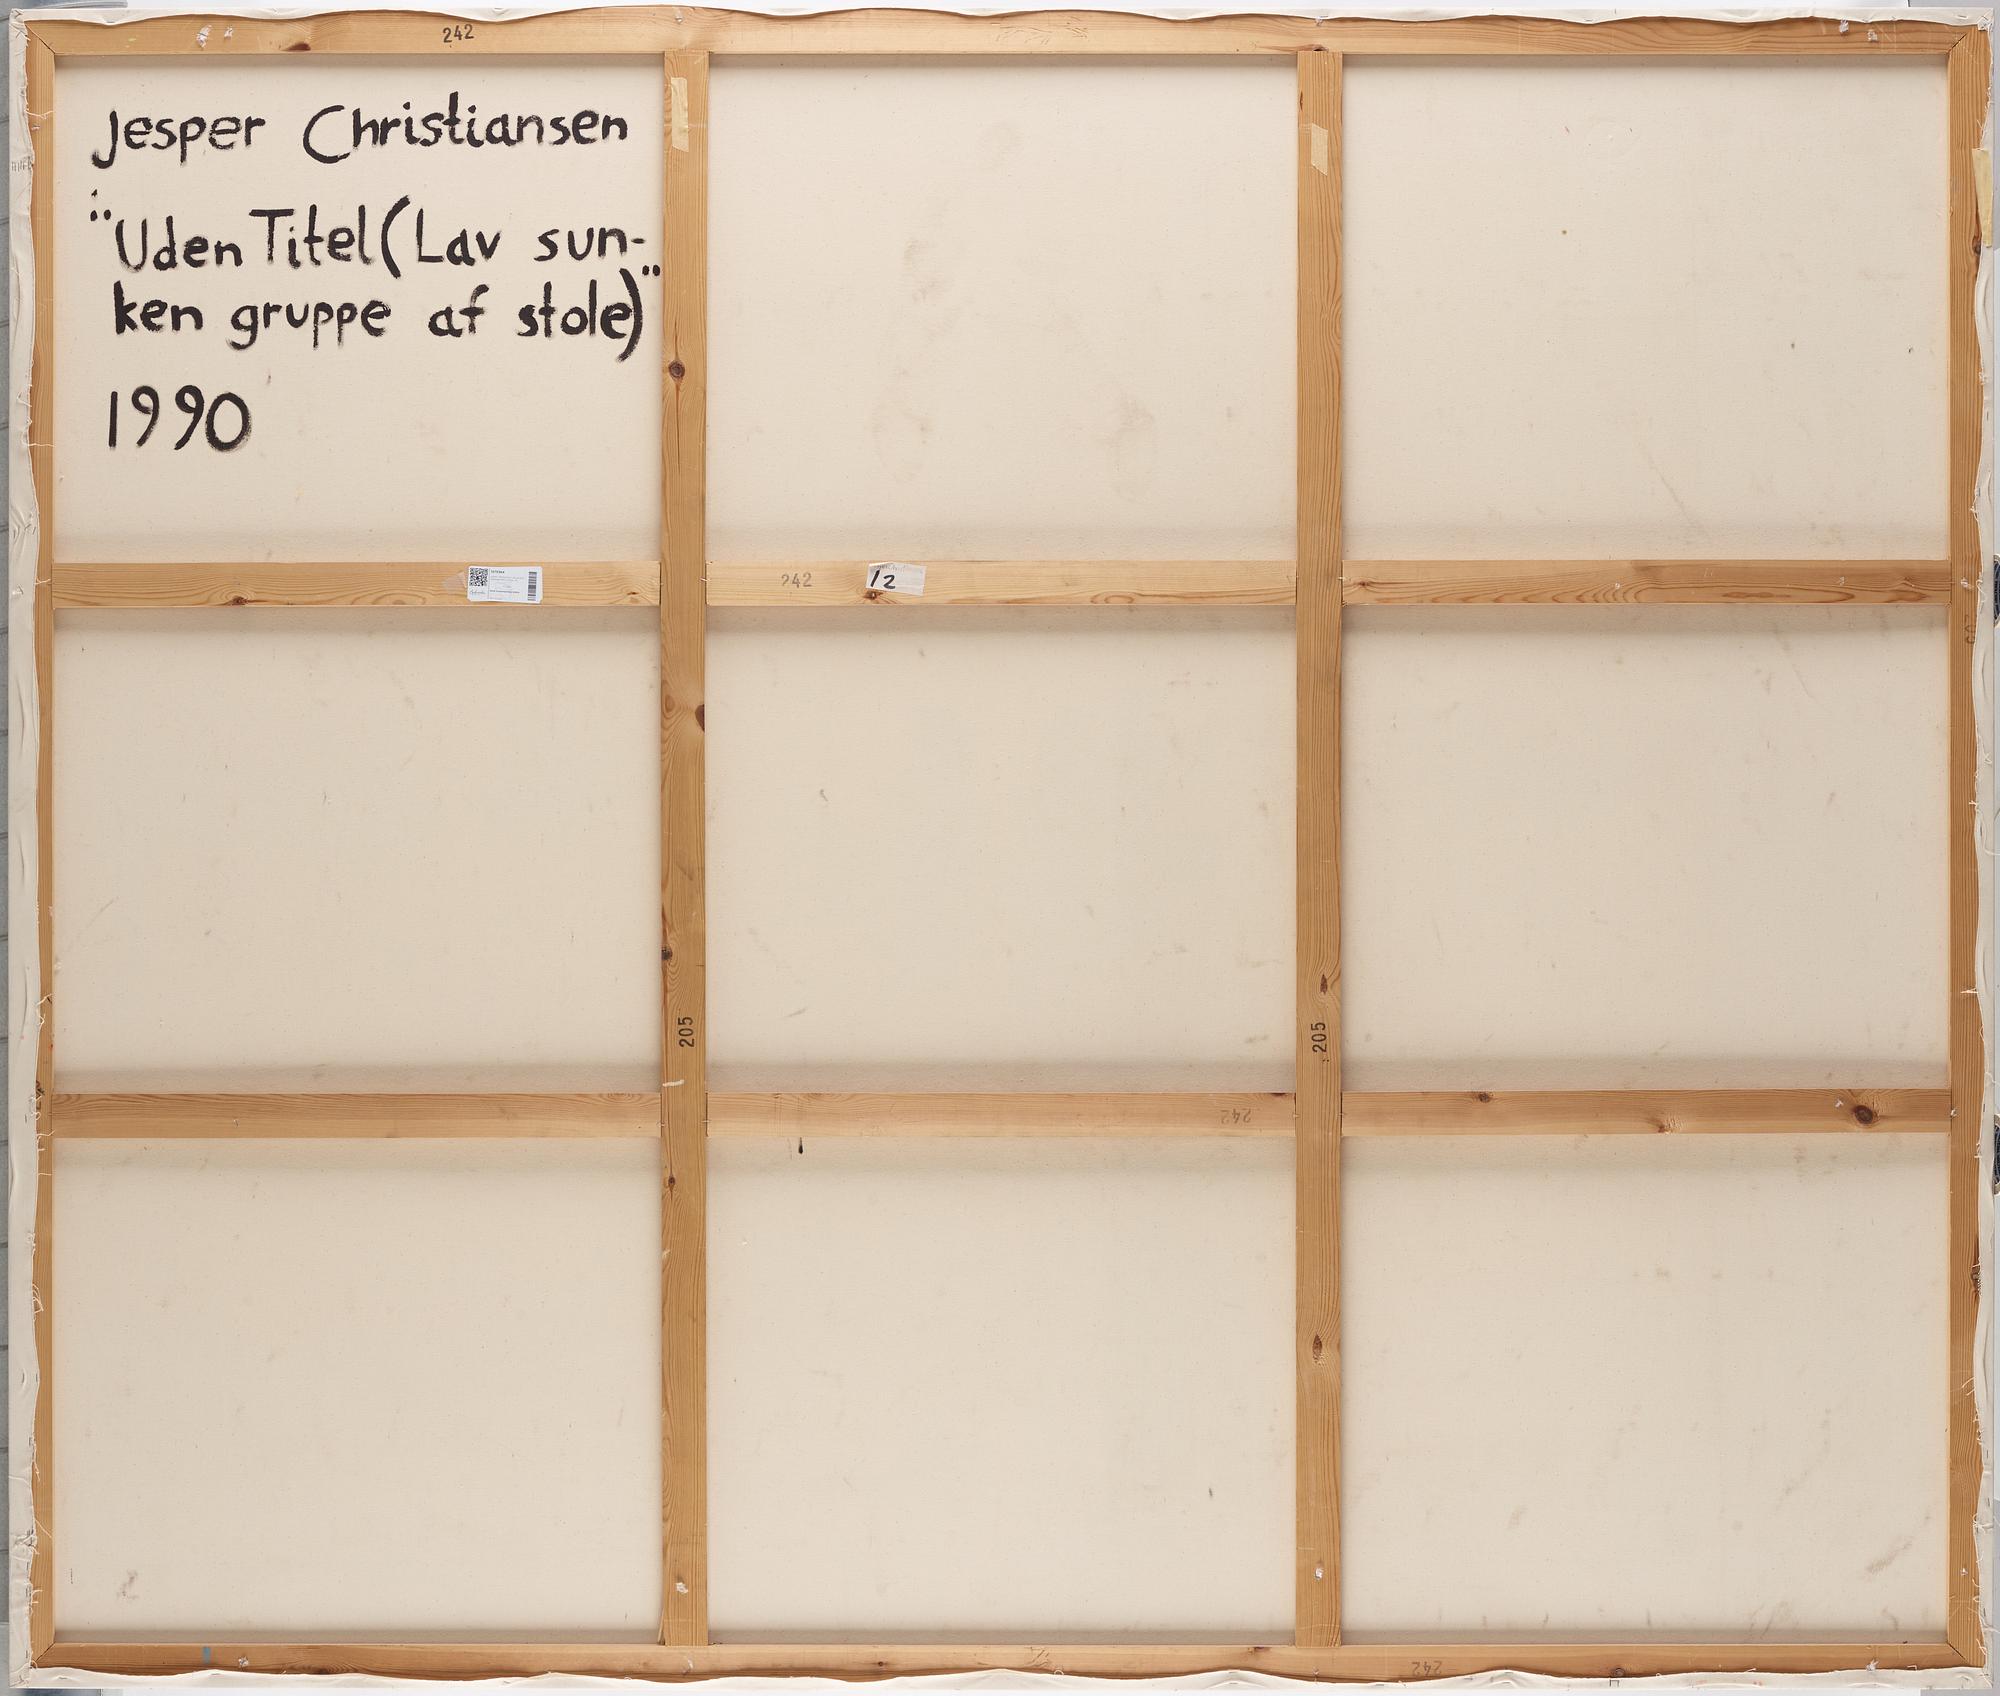 242
Jesper Christiansen
"Uden Titel (Lav sun-
ken gruppe af stole)"
1990
242
12
205
205
242
242